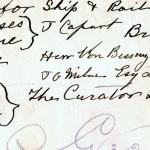 for Ship & Rail
J Capart Br
Herr Von Bissing
J G Milne Esq
The Curator